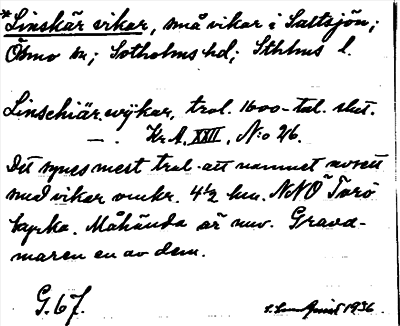 *Linskär vikar, små vikar i Saltsjön;
Ösmo sn; Sotholms hd; Sthlms l.
Linschiär wÿkar, trol. 1600-tal. slut.
— . Kr.A. XXII, N:o 26.
Det synes mest trol. att namnet avsett
med vikar omkr. 4½ km. NNO Torö
kyrka. Måhända är nuv. Gravd-
maren en av dem.
G. 67.
1936